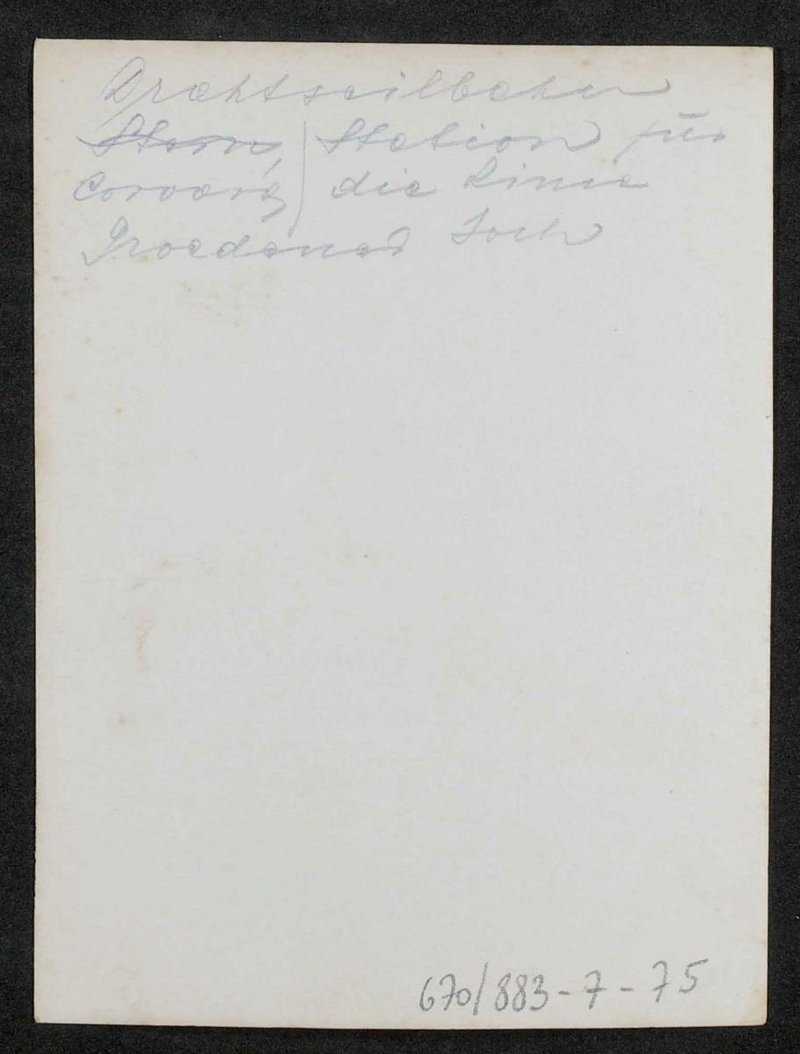 Drahtseilbahn
Stern, / Station für
Corvara / die Linie
Groedener Joch
670/883-7-75